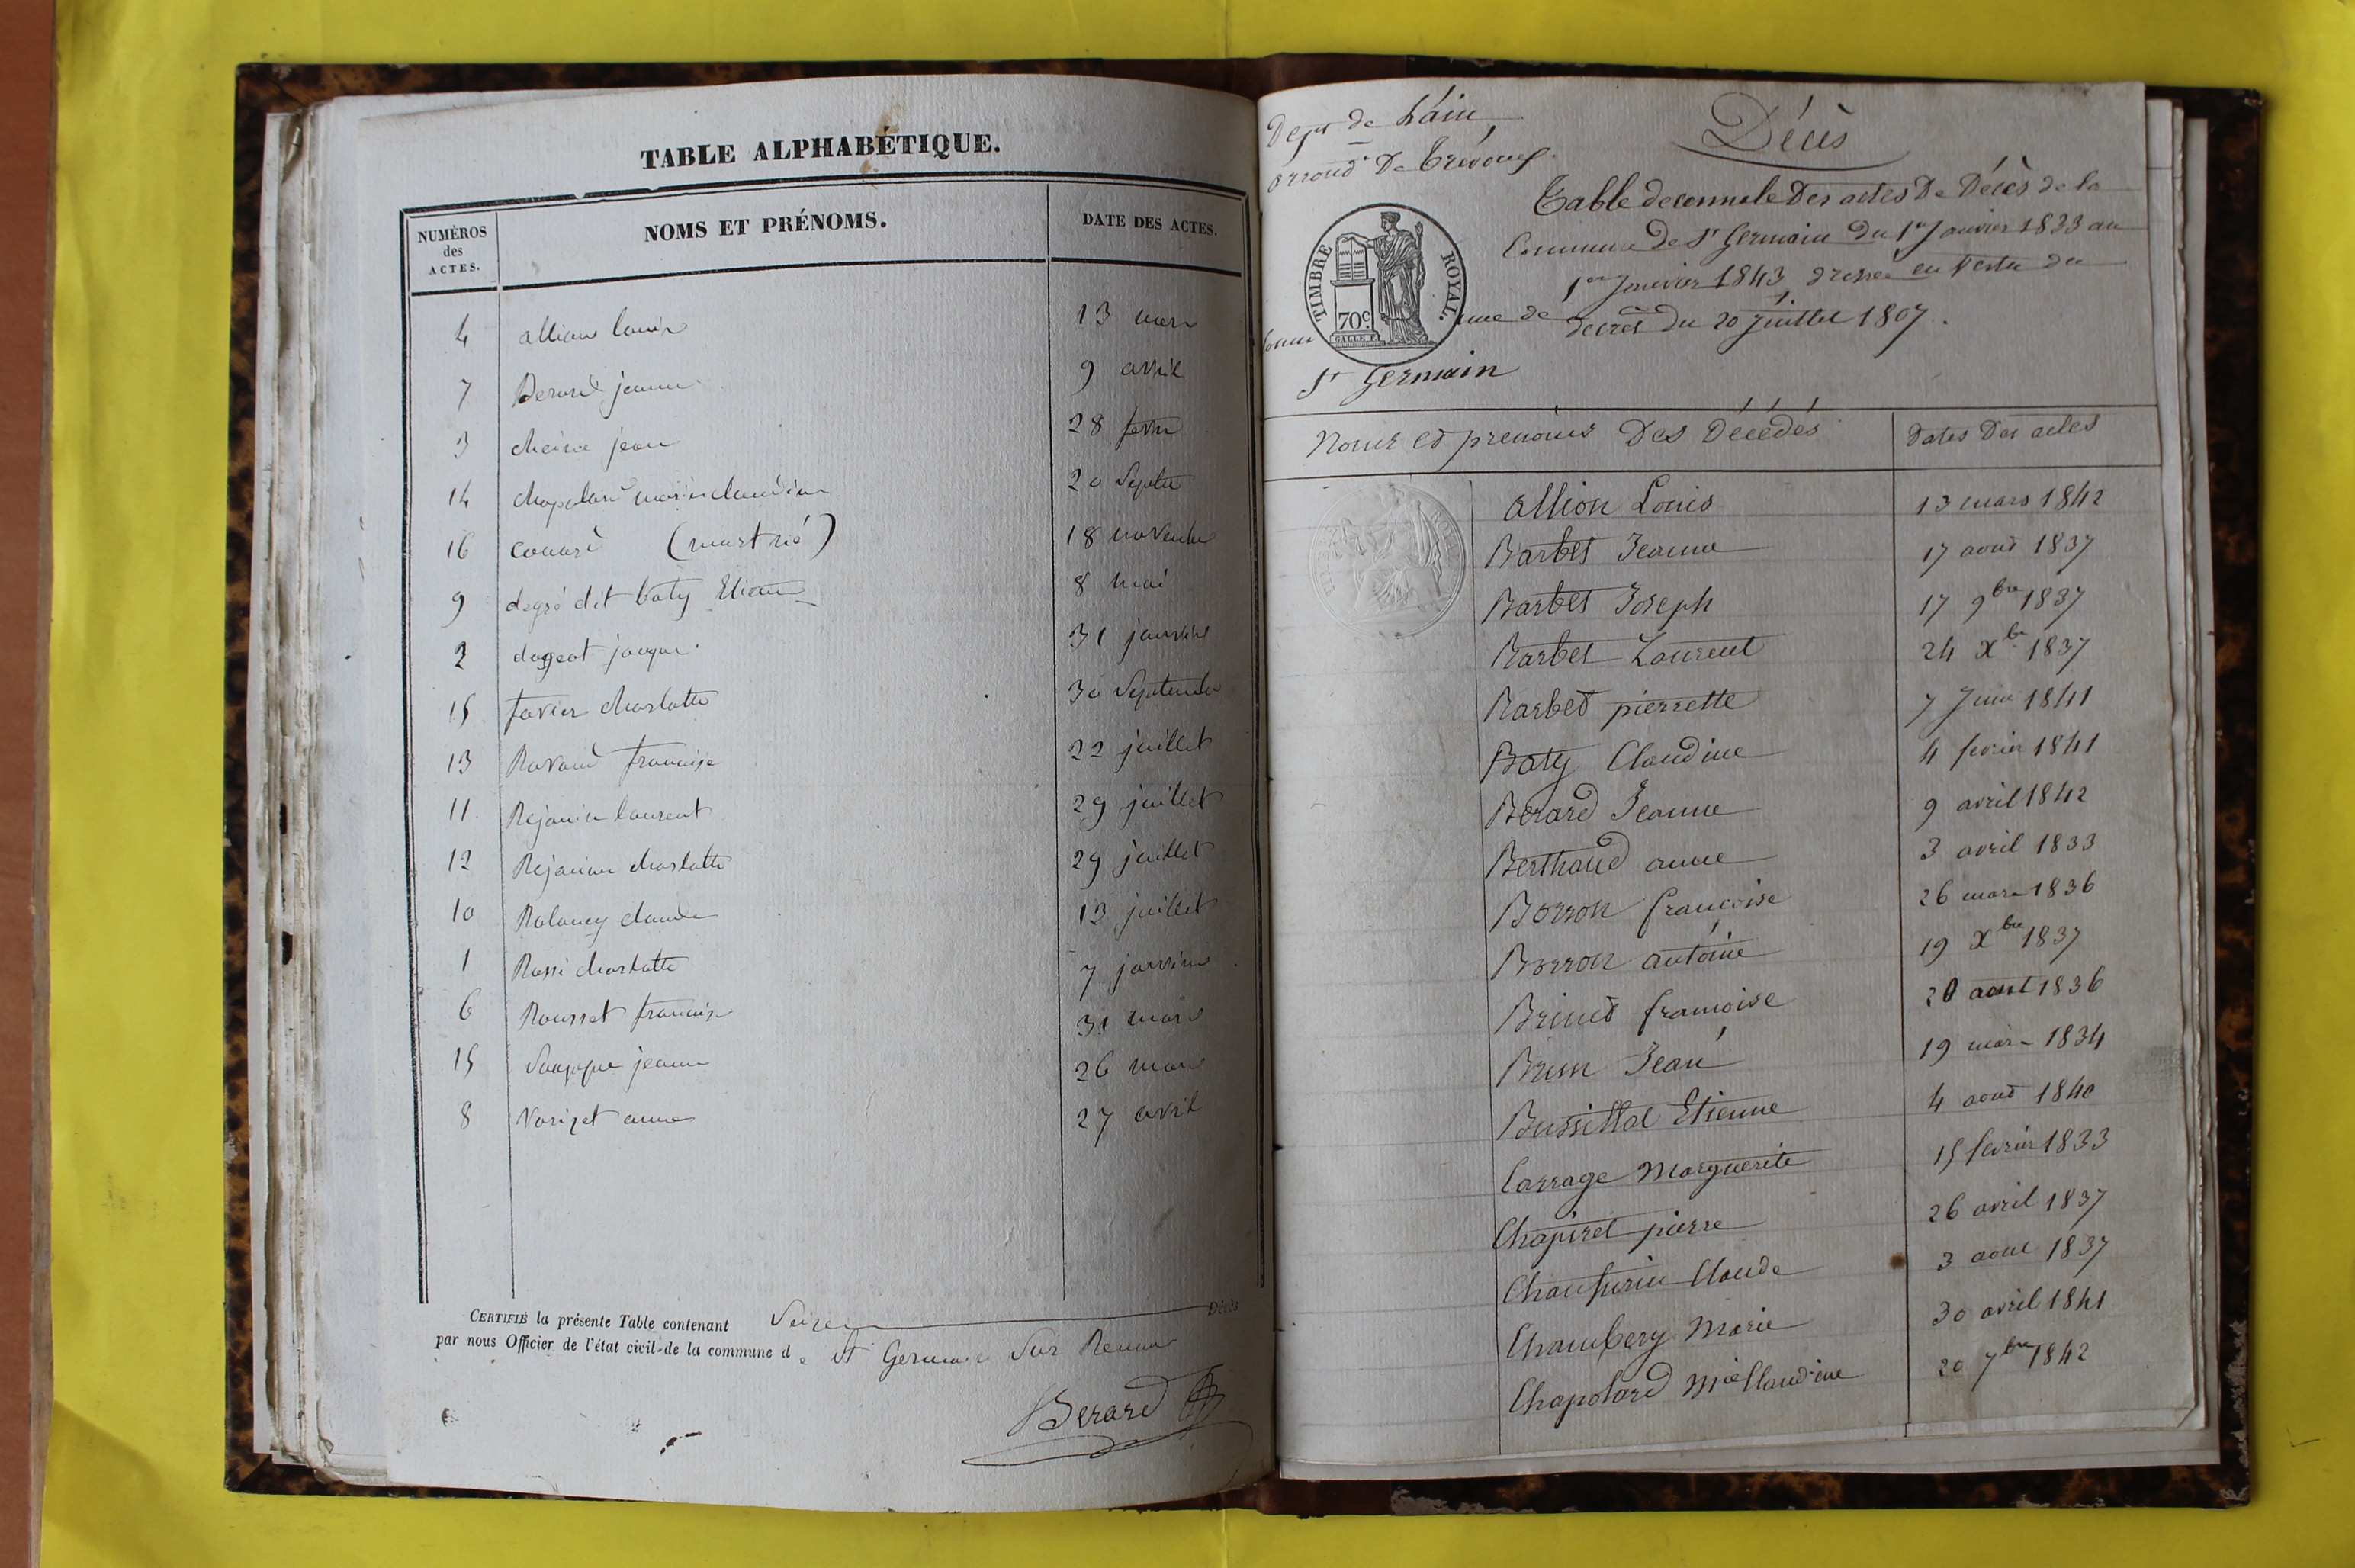 TABLE ALPHABÉTIQUE.
NUMÉROS des ACTES. NOMS ET PRÉNOMS. DATE DES ACTES.
4 allion louis 13 mars
7 Berard jeanne 9 avril
3 jean 28 fevrier
14 chapolard marie claudine 20 Septbre
16 (mort né) 18 novembre
9 degré dit baty Etienne 8 mai
2 dageot jacques 31 janvier
15 favier charlotte 30 Septembre
13 Ravaud francoise 22 juillet
11 Rejanin laurent 29 juillet
12 Rejanin charlotte 29 juillet
10 claude 13 juillet
1 Rossi charlotte 7 janvier
6 Rousset francoise 31 mars
15 jeanne 26 mars
8 Varizet anne 27 avril
CERTIFIÉ la présente Table contenant Seize Décès
par nous Officier de l'état civil de la commune de St Germain Sur Renom
Berard
Dept de L'ain
arrond.t De Trévoux
TIMBRE ROYAL.
70c
GALLE F.
Comm une de
St Germain
Décès
Table decennale Des actes De Décès de la
Commune De St Germain Du 1er Janvier 1833 au
1er Janvier 1843, dressée en Vertu du
decret du 20 Juillet 1807.
Noms et prenoms Des Décédés Dates Des actes
Allion Louis 13 mars 1842
Barbet Jeanne 17 aout 1837
Barbet Joseph 17 9bre 1837
Barbet Laurent 24 Xbre 1837
Barbet pierrette 7 Juin 1841
Baty Claudine 4 fevrier 1841
Berard Jeanne 9 avril 1842
Berthaud anne 3 avril 1833
Borron françoise 26 mars 1836
Borron antoine 19 Xbre 1837
Brinet francoise 20 aout 1836
Brun Jean 19 mars 1834
Bussillol Etienne 4 aout 1840
Carrage Marguerite 15 fevrier 1833
Chapiret pierre 26 avril 1837
Claude 3 aout 1837
Chambery Marie 30 avril 1841
Chapolard Mie Claudine 20 7bre 1842